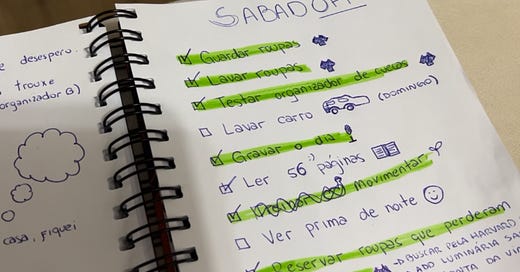 e desespero.
trouxe
organizador B)
casa, fiquei
SABADOU
Guardar roupas
Lavar roupas
Testar organizador de cuecas
Lavar carro (DOMINGO)
Gravar o dia
Ler 56 páginas
Movimentar
Ver prima de noite
Reservar roupas que perderam
→ BUSCAR PELA HARVARD
LADO LUMINÁRIA SA
TA DA VIA